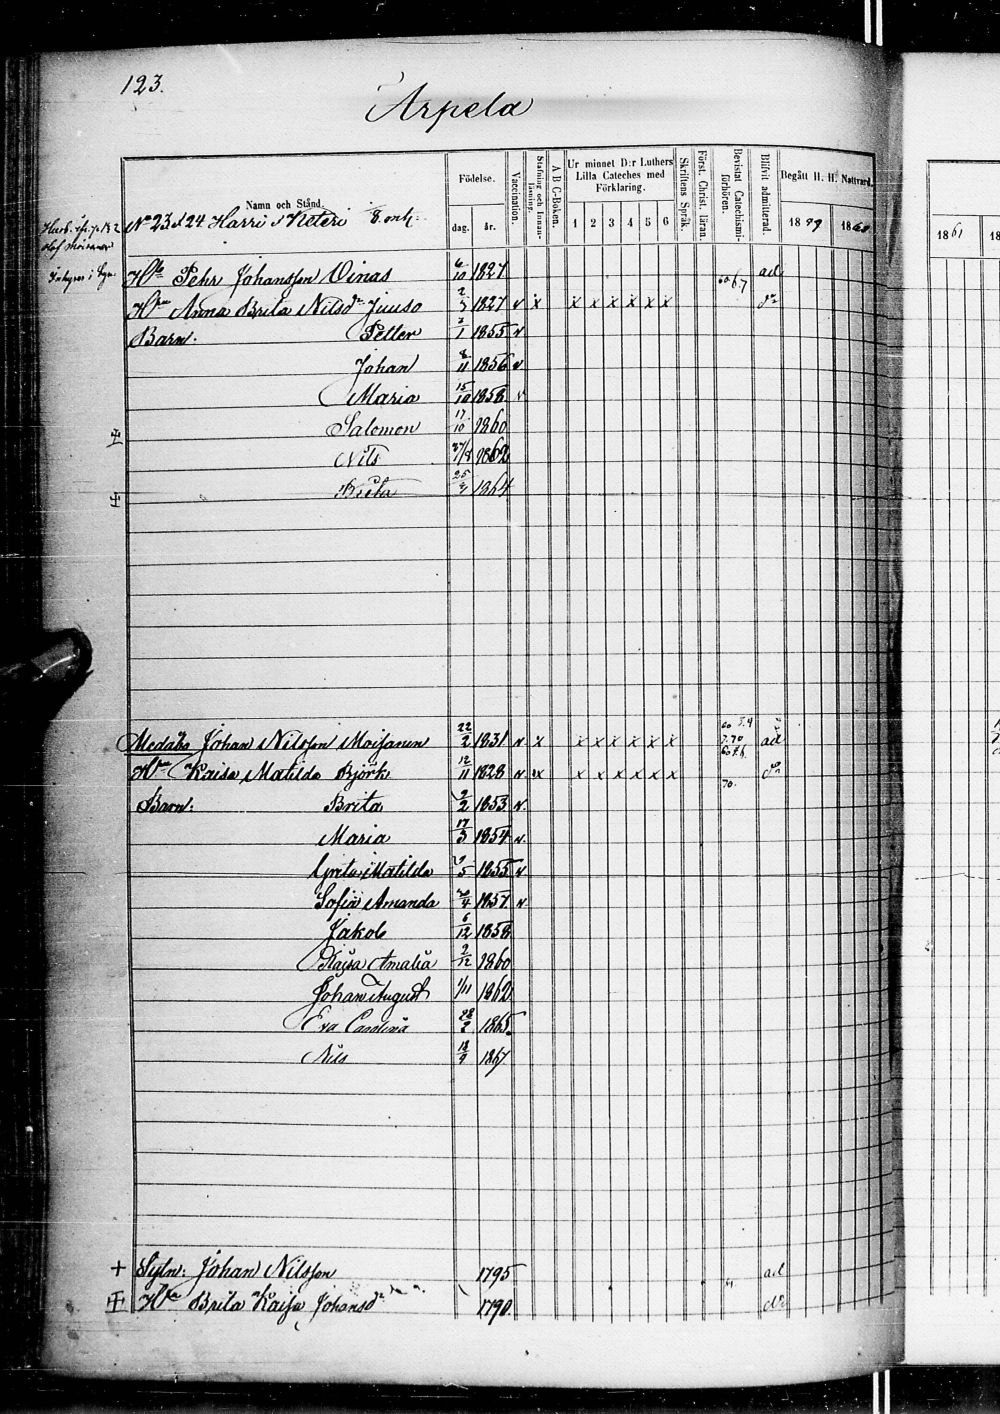 123.
Arpela
Namn och Stånd.
Födelse.
dag.
år.
Vaccination.
Stafning och Innan-läsning.
A B C-Boken.
Ur minnet D:r Luthers
Lilla Cateches med
Förklaring.
1 2 3 4 5 6
Skriftens Språk.
Först. Christ. läran.
Bevistat Catechismi-förhören.
Blifvit admitterad.
Begått H. H. Nattvard.
1859
1860
1861
No 23 o 24 Harri o Kieteri
Pehr Johansson Oinas 6/10 1827 67 ad
Anna Brita Nilsdr Juuso 1827 v x x x x x x x do
Barn: Petter 1855 v
Johan 8/11 1856 v
Maria 15/10 1858 v
Salomon 17/10 1860
Nils 27/8 1862
Brita 25 1864
Medåbo Johan Nilsson Moisanen 22/2 1831 v x x x x x x x 70 ad
Kaisa Matilda Björk 12/11 1828 v x x x x x x x 70. do
Barn: Brita 2/2 1853 v.
Maria 17/3 1854 v.
Greta Matilda 1855 v
Sofia Amanda 1857 v
Jakob 6/12 1858
Kajsa Amalia 2/12 1860
Johan August 1/11 1862
Eva Carolina 28/2 1865
Nils 18/9 1867
+ Sytn: Johan Nilsson 1795 ad
Brita Kaisa Johansdr 1790. do